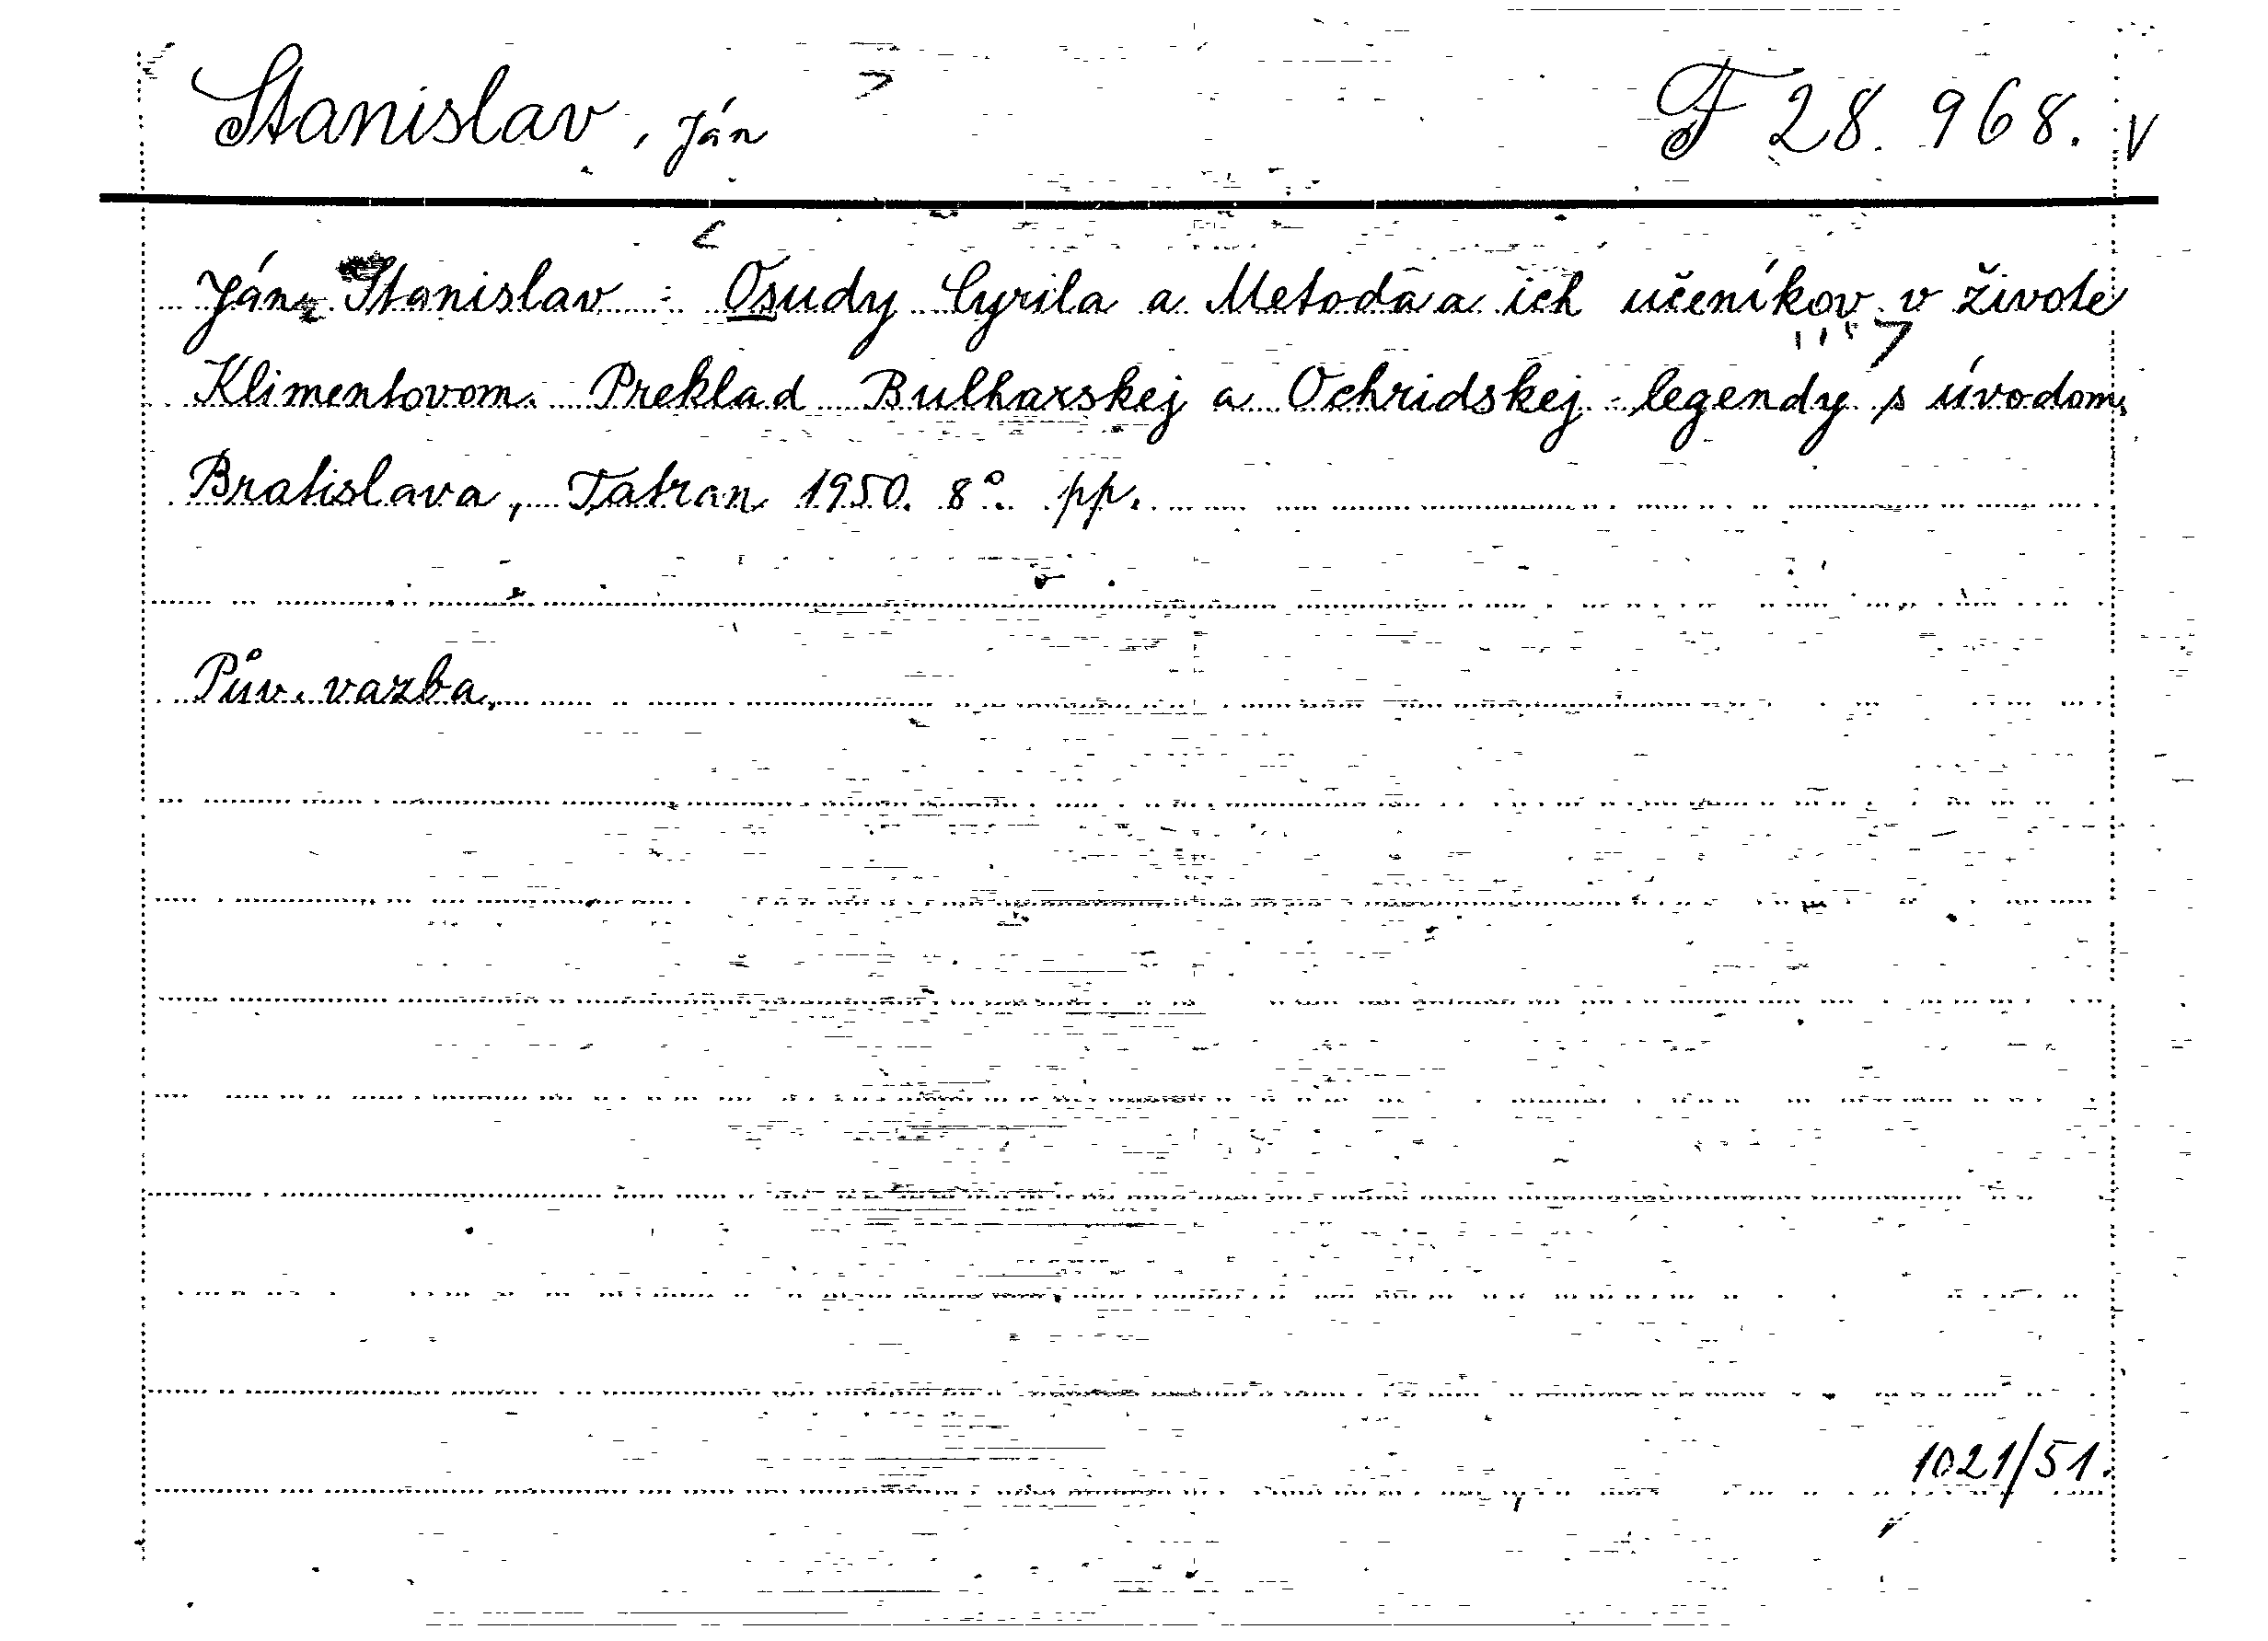 Stanislav, Ján F 28.968. V
Ján Stanislav : Osudy Cyrila a Metoda a ich učeníkov v živote
Klimentovom. Preklad Bulharskej a Ochridskej legendy s úvodom.
Bratislava, Tatran 1950. 8°. pp.
Pův. vazba.
1021/51.